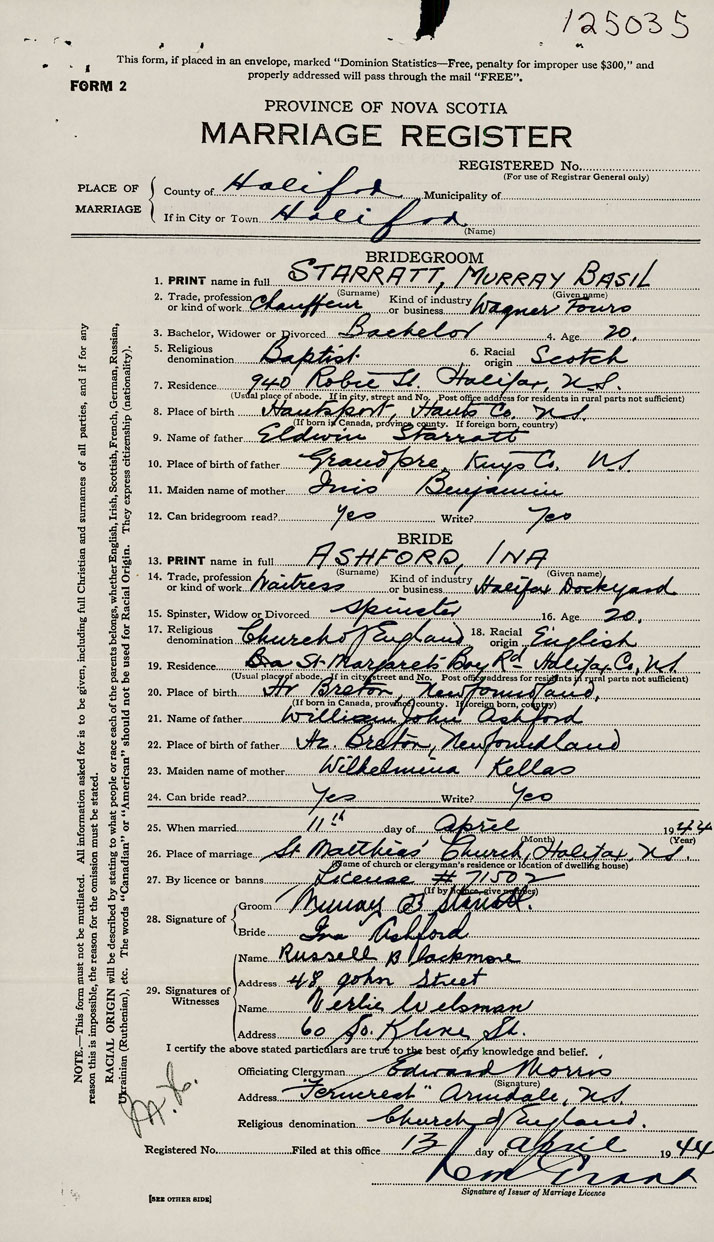 125035
This form, if placed in an envelope, marked "Dominion Statistics—Free, penalty for improper use $300," and
properly addressed will pass through the mail "FREE".
FORM 2
PROVINCE OF NOVA SCOTIA
MARRIAGE REGISTER
REGISTERED No.
(For use of Registrar General only)
PLACE OF MARRIAGE
County of Halifax Municipality of
If in City or Town Halifax
(Name)
BRIDEGROOM
1. PRINT name in full STARRATT, MURRAY BASIL
(Surname) (Given name)
2. Trade, profession or kind of work Chauffeur Kind of industry or business Wagner Tours
3. Bachelor, Widower or Divorced Bachelor 4. Age 20.
5. Religious denomination Baptist 6. Racial origin Scotch
7. Residence 940 Robie St. Halifax, N.S.
(Usual place of abode. If in city, street and No. Post office address for residents in rural parts not sufficient)
8. Place of birth Hantsport, Hants Co. N.S.
(If born in Canada, province, county. If foreign born, country)
9. Name of father Eldwin Starratt
10. Place of birth of father Grand Pre, Kings Co. NS
11. Maiden name of mother Inis Benjamin
12. Can bridegroom read? yes Write? Yes
BRIDE
13. PRINT name in full ASHFORD, INA
(Surname) (Given name)
14. Trade, profession or kind of work Waitress Kind of industry or business Halifax Dockyard
15. Spinster, Widow or Divorced Spinster 16. Age 20.
17. Religious denomination Church of England 18. Racial origin English
19. Residence St. Margarets Bay Rd Halifax Co, NS
(Usual place of abode. If in city, street and No. Post office address for residents in rural parts not sufficient)
20. Place of birth Hr Breton, Newfoundland,
(If born in Canada, province, county. If foreign born, country)
21. Name of father William John Ashford
22. Place of birth of father Hr. Breton, Newfoundland
23. Maiden name of mother Wilhelmina Kellas
24. Can bride read? Yes Write? Yes
25. When married 11th day of April 1944
(Month) (Year)
26. Place of marriage St Matthias' Church, Halifax, N.S.
(Name of church or clergyman's residence or location of dwelling house)
27. By licence or banns License # 71502
(If by licence, give number)
28. Signature of
Groom Murray B Starratt.
Bride Ina Ashford
29. Signatures of Witnesses
Name Russell Blackmore
Address 48 John Street
Name Verlie Welsman
Address 60 So. Kline St.
I certify the above stated particulars are true to the best of my knowledge and belief.
Officiating Clergyman Edward Morris
(Signature)
Address "Ferncrest" Armdale, N.S.
Religious denomination Church of England.
Registered No. Filed at this office 13 day of April 1944
Grant
Signature of Issuer of Marriage Licence
[SEE OTHER SIDE]
NOTE.—This form must not be mutilated. All information asked for is to be given, including full Christian and surnames of all parties, and if for any
reason this is impossible, the reason for the omission must be stated.
RACIAL ORIGIN will be described by stating to what people or race each of the parents belongs, whether English, Irish, Scottish, French, German, Russian,
Ukrainian (Ruthenian), etc. The words "Canadian" or "American" should not be used for Racial Origin. They express citizenship (nationality).